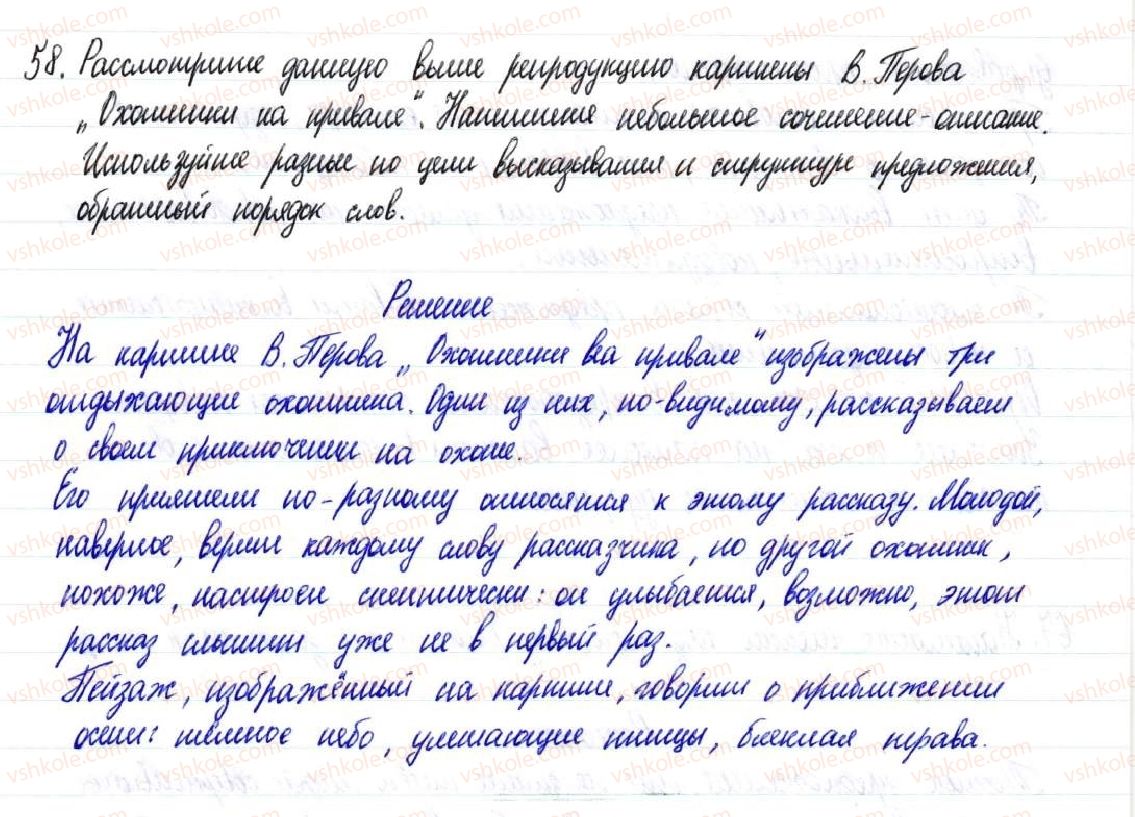 58. Рассмотрите данную выше репродукцию картины В. Перова
„Охотники на привале". Напишите небольшое сочинение-описание.
Используйте разные по цели высказывания и структуре предложения,
обратный порядок слов.
Решение
На картине В. Перова „Охотники на привале" изображены три
отдыхающие охотника. Один из них, по-видимому, рассказывает
о своем приключении на охоте.
Его приятели по-разному относятся к этому рассказу. Молодой,
наверное, верит каждому слову рассказчика, но другой охотник,
похоже, настроен скептически: он улыбается, возможно, этот
рассказ слышит уже не в первый раз.
Пейзаж, изображённый на картине, говорит о приближении
осени: тёмное небо, улетающие птицы, блеклая трава.